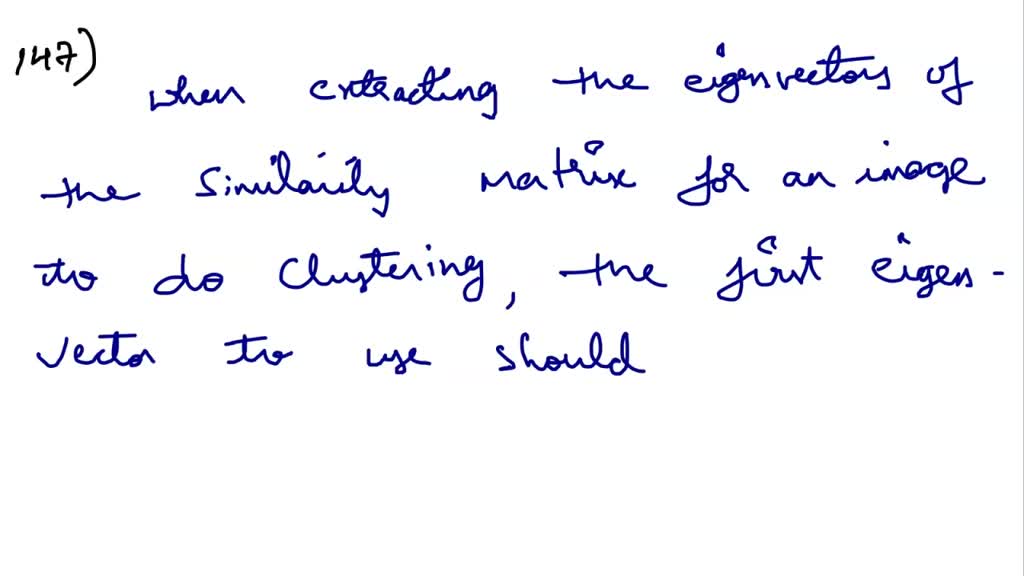 147)
when extracting the eigenvectors of
the Similarity matrix for an image
to do Clustering, the first eigen-
vector to use should